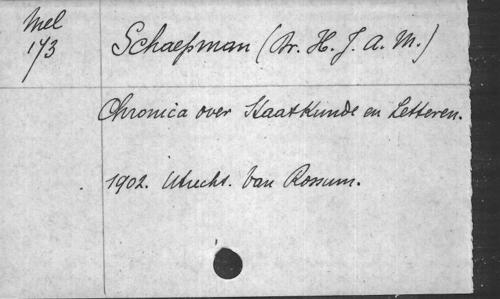 Mel
173
Schaepman (Dr. H. J. A. M.)
Chronica over Staatkunde en Letteren.
1902. Utrecht. Van Rossum.